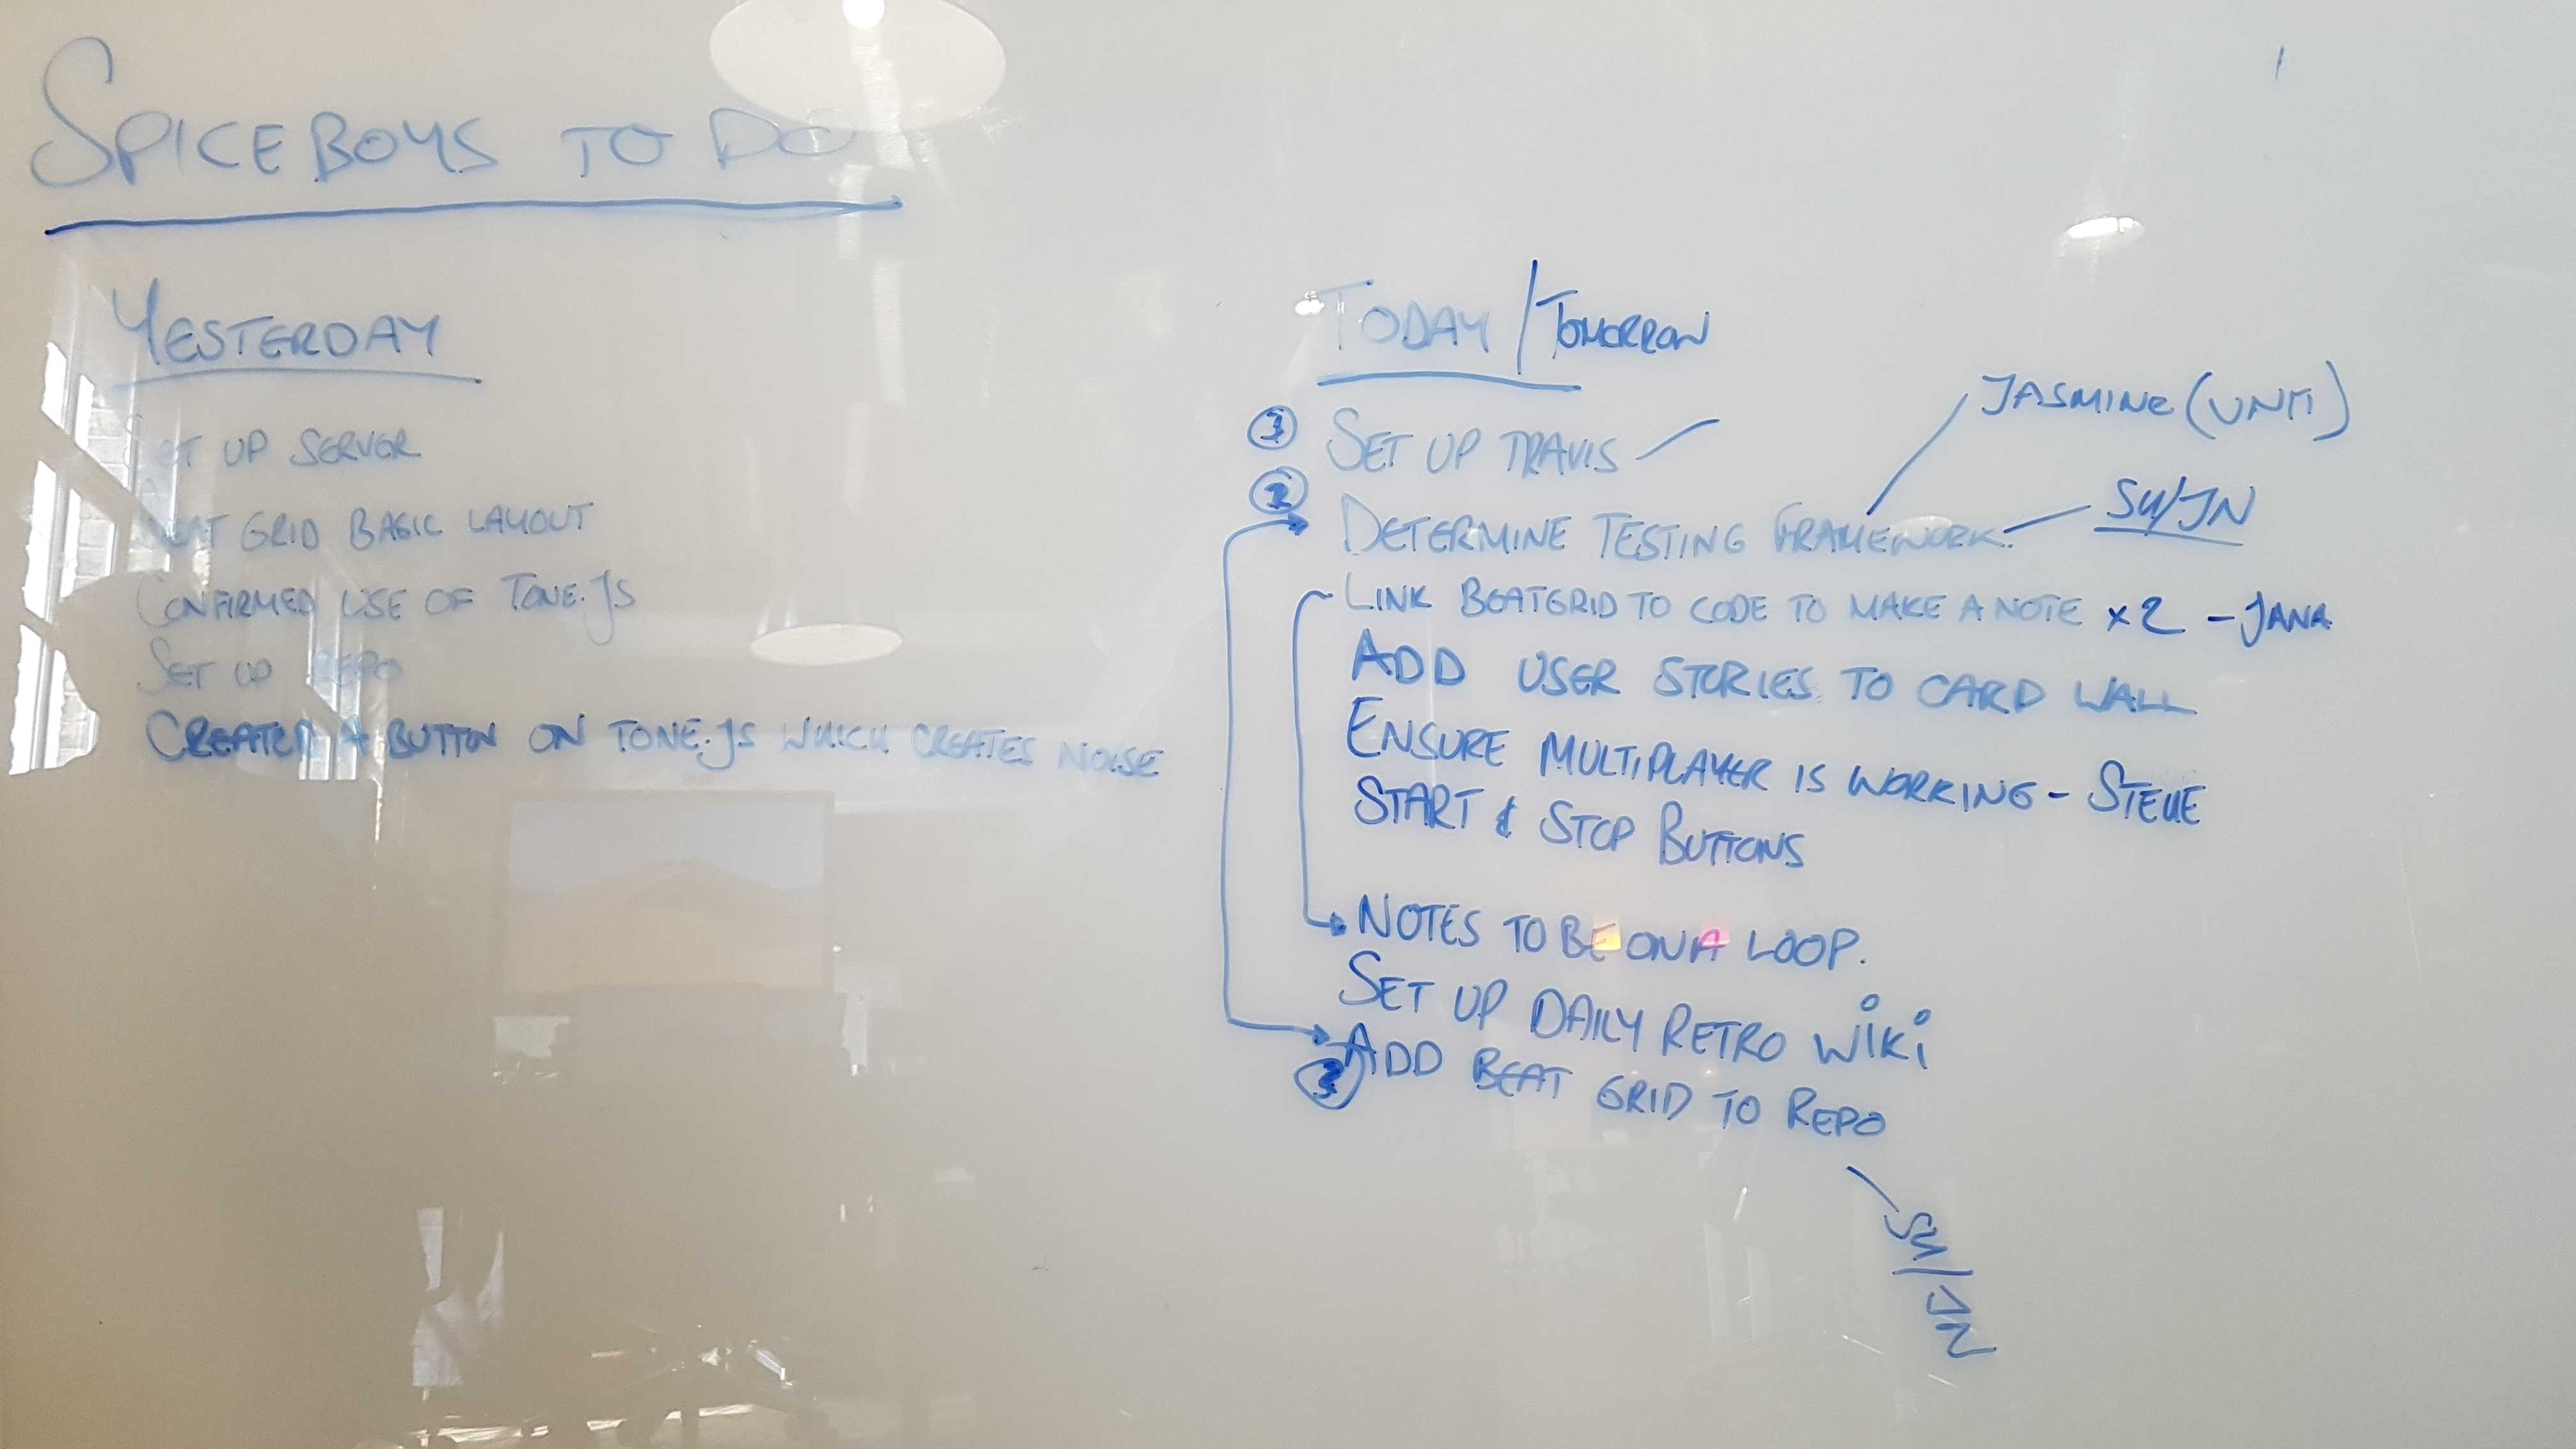 SPICEBOYS TO DO
YESTERDAY
SET UP SERVER
BEAT GRID BASIC LAYOUT
CONFIRMED USE OF TONE.JS
SET UP REPO
CREATED A BUTTON ON TONE.JS WHICH CREATES NOISE
TODAY / TOMORROW
SET UP TRAVIS
JASMINE (UNIT)
2 DETERMINE TESTING FRAMEWORK. SU/JN
LINK BEATGRID TO CODE TO MAKE A NOTE x2 - JANA
ADD USER STORIES TO CARD WALL
ENSURE MULTIPLAYER IS WORKING - STEVE
START & STOP BUTTONS
NOTES TO BE ON A LOOP.
SET UP DAILY RETRO WIKI
3 ADD BEAT GRID TO REPO
SU/JN